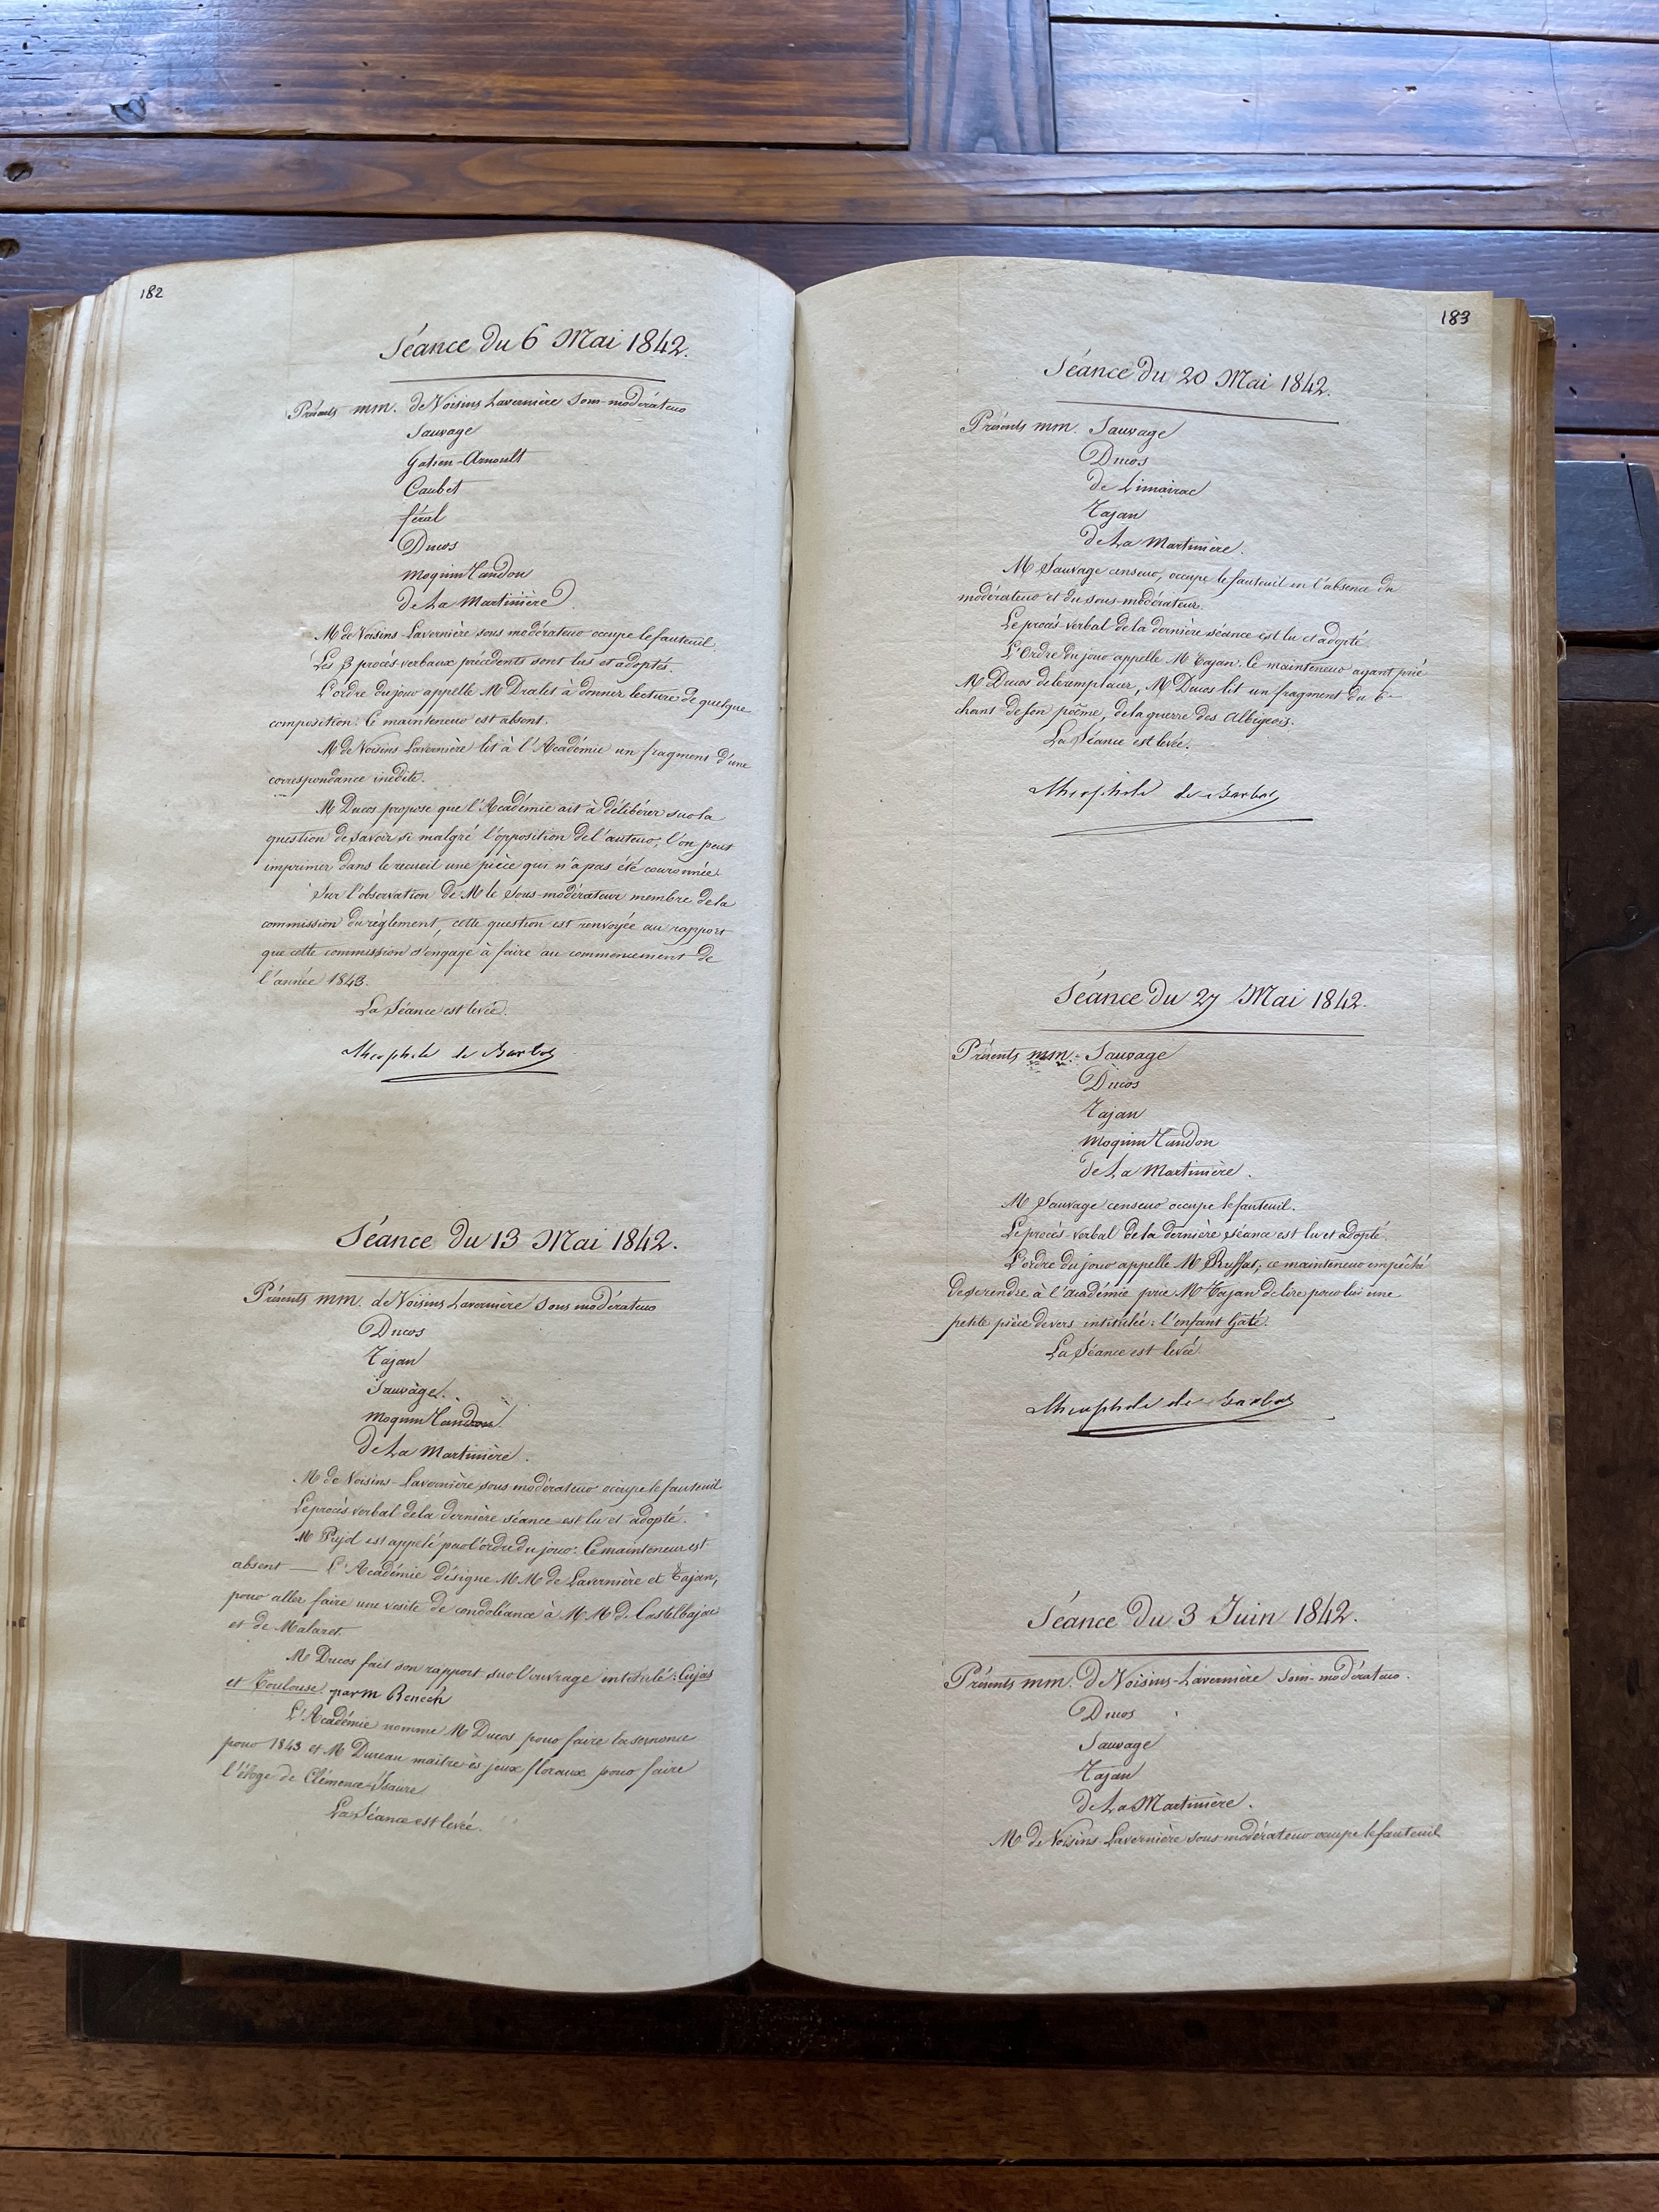 182
Séance du 6 Mai 1842.
Présents mm. de Voisins Lavernière Sous-modérateur
Sauvage
Gatien-Arnoult
Caubet
féral
Ducos
Moquin Tandon
de La Martinière
M de Voisins-Lavernière sous modérateur occupe le fauteuil.
Les 3 procès verbaux précédents sont lus et adoptés
L'ordre du jour appelle M Dralet à donner lecture de quelque
composition. Ce mainteneur est absent.
M de Voisins Lavernière lit à l'Académie un fragment d'une
correspondance inédite.
M Ducos propose que l'Académie ait à délibérer sur la
question de savoir si malgré l'opposition de l'auteur, l'on peut
imprimer dans le recueil une pièce qui n'a pas été couronnée.
Sur l'observation de M le Sous-modérateur membre de la
commission du règlement, cette question est renvoyée au rapport
que cette commission s'engage à faire au commencement de
l'année 1843.
La Séance est levée.
Théophile de Barbot
Séance du 13 Mai 1842.
Présents mm. de Voisins Lavernière Sous modérateur
Ducos
Tajan
Sauvage.
Moquin Tandon
de La Martinière.
M de Voisins-Lavernière sous modérateur occupe le fauteuil
Le procès verbal de la dernière séance est lu et adopté.
M est appelé par l'ordre du jour. Ce mainteneur est
absent — L'Académie désigne MM de Lavernière et Tajan,
pour aller faire une visite de condoléance à MM de Castelbajac
et de Malaret
M Ducos fait son rapport sur l'ouvrage intitulé: Cujas
et Toulouse par m Benech
L'Académie nomme M Ducos pour faire la semonce
pour 1843 et M Ducan maître ès jeux floraux pour faire
l'éloge de Clémence-Isaure
La Séance est levée.
183
Séance du 20 Mai 1842.
Présents mm. Sauvage
Ducos
de Limairac
Tajan
de La Martinière.
M Sauvage censeur, occupe le fauteuil en l'absence du
modérateur et du sous-modérateur.
Le procès verbal de la dernière séance est lu et adopté
L'Ordre du jour appelle M Tajan. Ce mainteneur ayant prié
M Ducos de le remplacer, M Ducos lit un fragment du 6e
chant de son poême, de la guerre des Albigeois.
La Séance est levée.
Théophile de Barbot
Séance du 27 Mai 1842.
Présents mm. Sauvage
Ducos
Tajan
Moquin Tandon
de La Martinière.
M Sauvage censeur occupe le fauteuil.
Le procès-verbal de la dernière séance est lu et adopté.
L'ordre du jour appelle M Ruffat; ce mainteneur empêché
de se rendre à l'académie prie M Tajan de lire pour lui une
petite pièce de vers intitulée: l'enfant Gâté.
La Séance est levée
Théophile de Barbot
Séance du 3 Juin 1842.
Présents mm. de Voisins-Lavernière Sous-modérateur.
Ducos
Sauvage
Tajan
de La Martinière.
M de Voisins Lavernière sous modérateur occupe le fauteuil